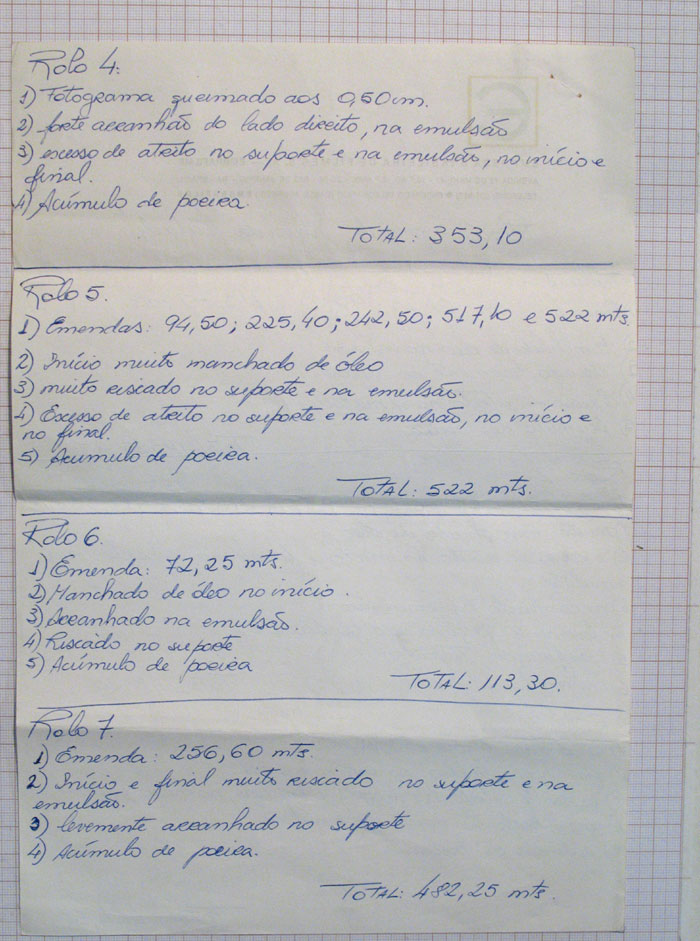 Rolo 4:
1) Fotograma queimado aos 0,50cm.
2) forte arranhão do lado direito, na emulsão
3) excesso de atrito no suporte e na emulsão, no início e
final.
4) Acúmulo de poeira.
TOTAL: 353,10
Rolo 5.
1) Emendas: 94,50; 225,40; 242,50; 517,10 e 522 mts.
2) Início muito manchado de óleo
3) muito riscado no suporte e na emulsão.
4) Excesso de atrito no suporte e na emulsão, no início e
no final.
5) Acumulo de poeira.
TOTAL: 522 mts.
Rolo 6.
1) Emenda: 72,25 mts.
2) Manchado de óleo no início.
3) Arranhado na emulsão.
4) Riscado no suporte
5) Acúmulo de poeira
TOTAL: 113,30.
Rolo 7.
1) Emenda: 256,60 mts.
2) Início e final muito riscado no suporte e na
emulsão.
3) levemente arranhado no suporte
4) Acúmulo de poeira.
TOTAL: 482,25 mts.